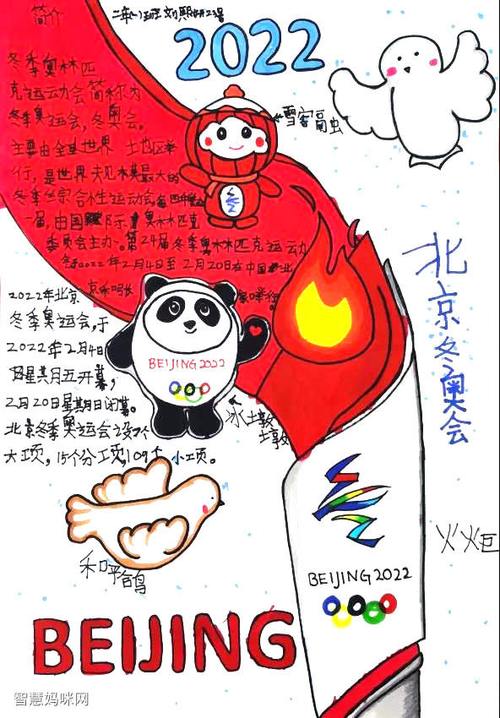 简介
二年(1)班
2022
冬季奥林匹
克运动会简称为
冬季奥运会,冬奥会。
主要由全世界 土也区举
行,是世界
冬季综合性运动会
一届,由国际奥林匹克
委员会主办。第24届冬季奥林匹克运动
会2022年2月4日至2月20日在中国
2022年北京
冬季奥运会,于
2022年2月4日
星期五开幕,
2月20日星期日闭幕。
北京冬季奥运会设7个
大项,15个分项,109个小项。
雪容融
北京冬奥会
BEIJING 2022
冰土敦
土敦
和平鸽
火火巨
BEIJING 2022
BEIJING
智慧妈咪网